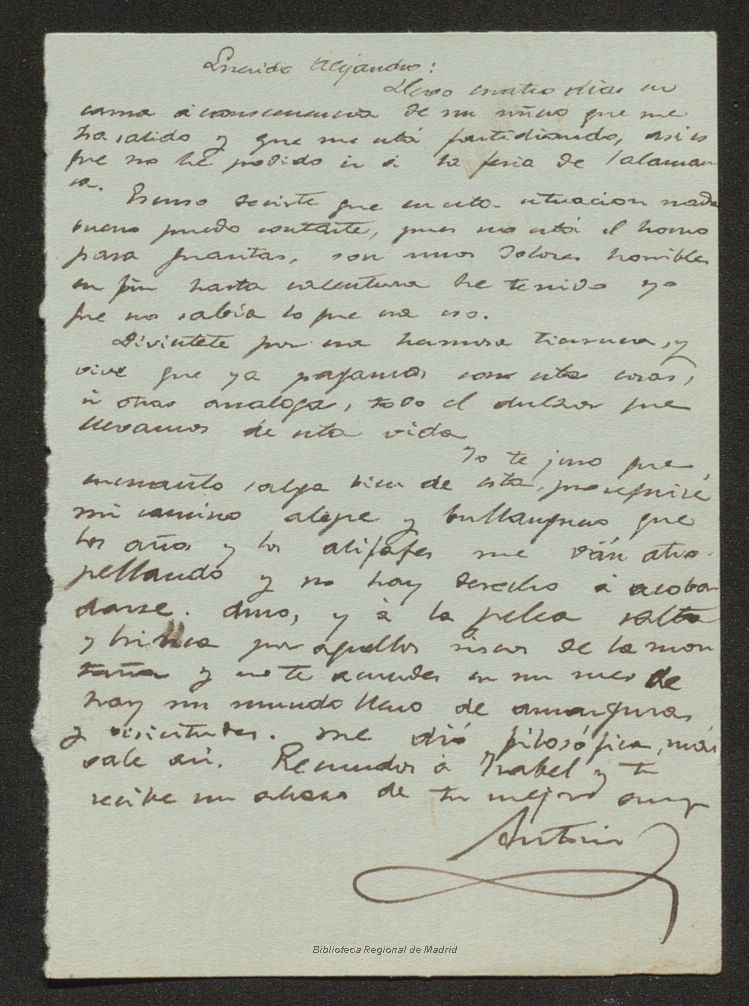 Querido Alejandro:
Llevo cuatro dias en
cama á consecuencia de un uñero que me
ha salido y que me está fastidiando, asi es
que no he podido ir á la feria de Salaman
ca.
Escuso decirte que en esta situacion nada
bueno puedo contarte, pues no está el horno
para fruritas, son unos dolores horribles
en fin hasta calentura he tenido yo
que no sabía lo que era eso.
Diviertete por esa hermosa tierruca, y
vive que ya pagamos con estas cosas,
ú otras analogas, todo el dulzor que
llevamos de esta vida
Yo te juro que
en cuanto salga bien de esta proseguiré
mi camino alegre y bullanguero que
los años y los alifafes me ván atro-
pellando y no hay derecho á acobar
darse. Amo, y á la pelea salta
y brinca por aquellos riscos de la mon
taña y no te acuerdes en un mes de
hay un mundo lleno de amarguras
y vicisitudes. Me dió filosófica, más
vale asi. Recuerdos á Isabel y tu
recibe un abrazo de tu mejor amigo
Antonio
Biblioteca Regional de Madrid